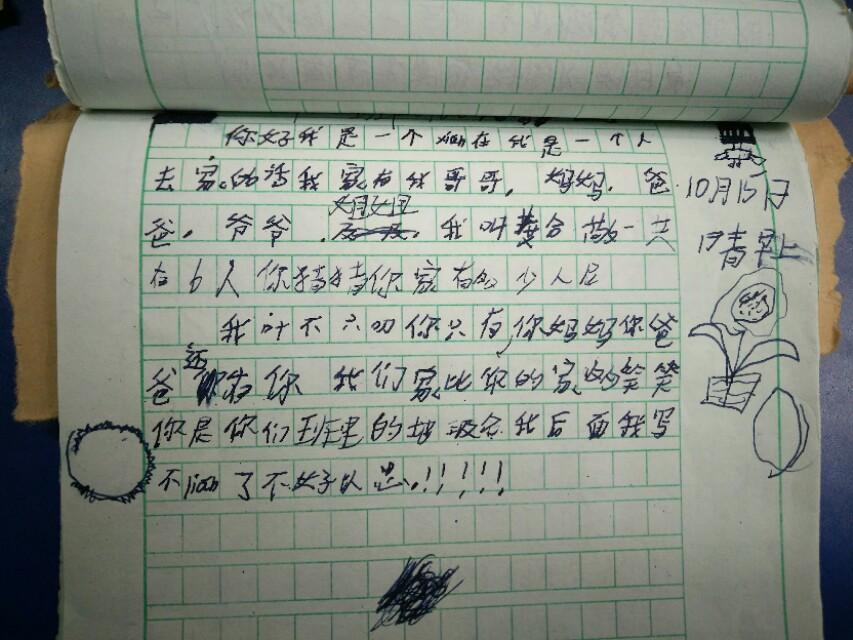 你好我是一个xian在我是一个人
去家的话我家有我哥哥,妈妈.爸
爸.爷爷.姐姐.我叫 一共
在6人你 你家有多少人呢
我叶不六切你只有,你妈妈你爸
爸还有你 我们家比你的家的笑笑
你是你们班里的 我后面我写
不lian了不好以思.!!!!!
10月15日
晴早上